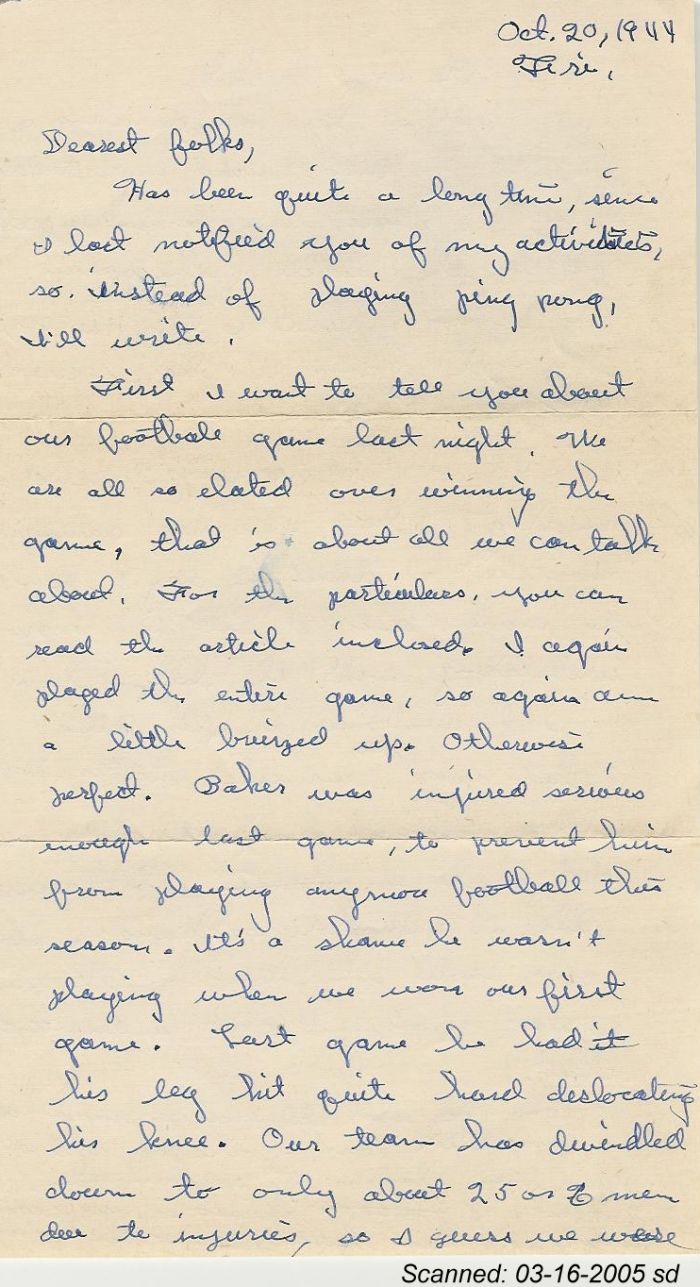 Oct. 20, 1944
Fri.
Dearest folks,
Has been quite a long time, since
I last notified you of my activities,
so. instead of playing ping pong,
I'll write.
First I want to tell you about
our football game last night. We
are all so elated over winning the
game, that is about all we can talk
about. For the particulars, you can
read the article inclosed. I again
played the entire game, so again am
a little bruized up. Otherwise
perfect. Baker was injured serious
enough last game, to prevent him
from playing anymore football this
season. It's a shame he wasn't
playing when we won our first
game. Last game he had
his leg hit quite hard deslocating
his knee. Our team has dwindled
down to only about 25 or 6 men
due to injuries, so I guess we
Scanned: 03-16-2005 sd